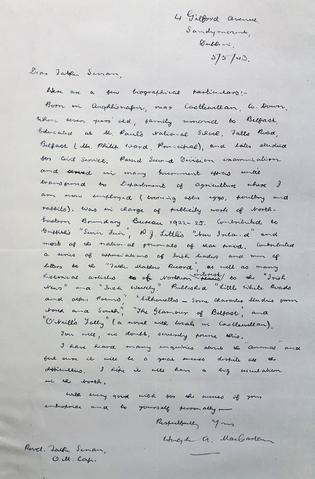 4 Gilford Avenue
Sandymount,
Dublin.
5/5/43.
Dear Father Senan,
Here are a few biographical particulars:-
Born in Aughlisnafin, near Castlewellan, Co. Down,
when seven years old, family removed to Belfast,
Educated at St. Paul's National School, Falls Road,
Belfast (Mr. Philip Ward, Principal), and later studied
for Civil Service. Passed Second Division examination
and served in many Government offices until
transferred to Department of Agriculture where I
am now employed (looking after eggs, poultry and
rabbits). Was in charge of publicity work of North-
Eastern Boundary Bureau 1922-25. Contributed to
Griffith's "Sinn Fein", R.J. Little's "New Ireland" and
most of the national journals of that period. Contributed
a series of appreciations of Irish leaders and men of
letters to the "Father Mathew Record", as well as many
historical articles of Northern interest to the "Irish
News" and "Irish Weekly". Published "Little White Roads
and other Poems", "Silhouettes - Some character studies from
North and South", "The Glamour of Belfast", and
"O'Neill's Folly" (a novel with locale in Castlewellan).
You will, no doubt, severely prune this.
I have heard many enquiries about the Annual and
feel sure it will be a great success despite all the
difficulties. I hope it will have a big circulation
in the North.
With every good wish for the success of your
enterprise and to yourself personally -
Respectfully Yours
Hugh A. MacCartan
Revd. Father Senan,
O.M. Cap.